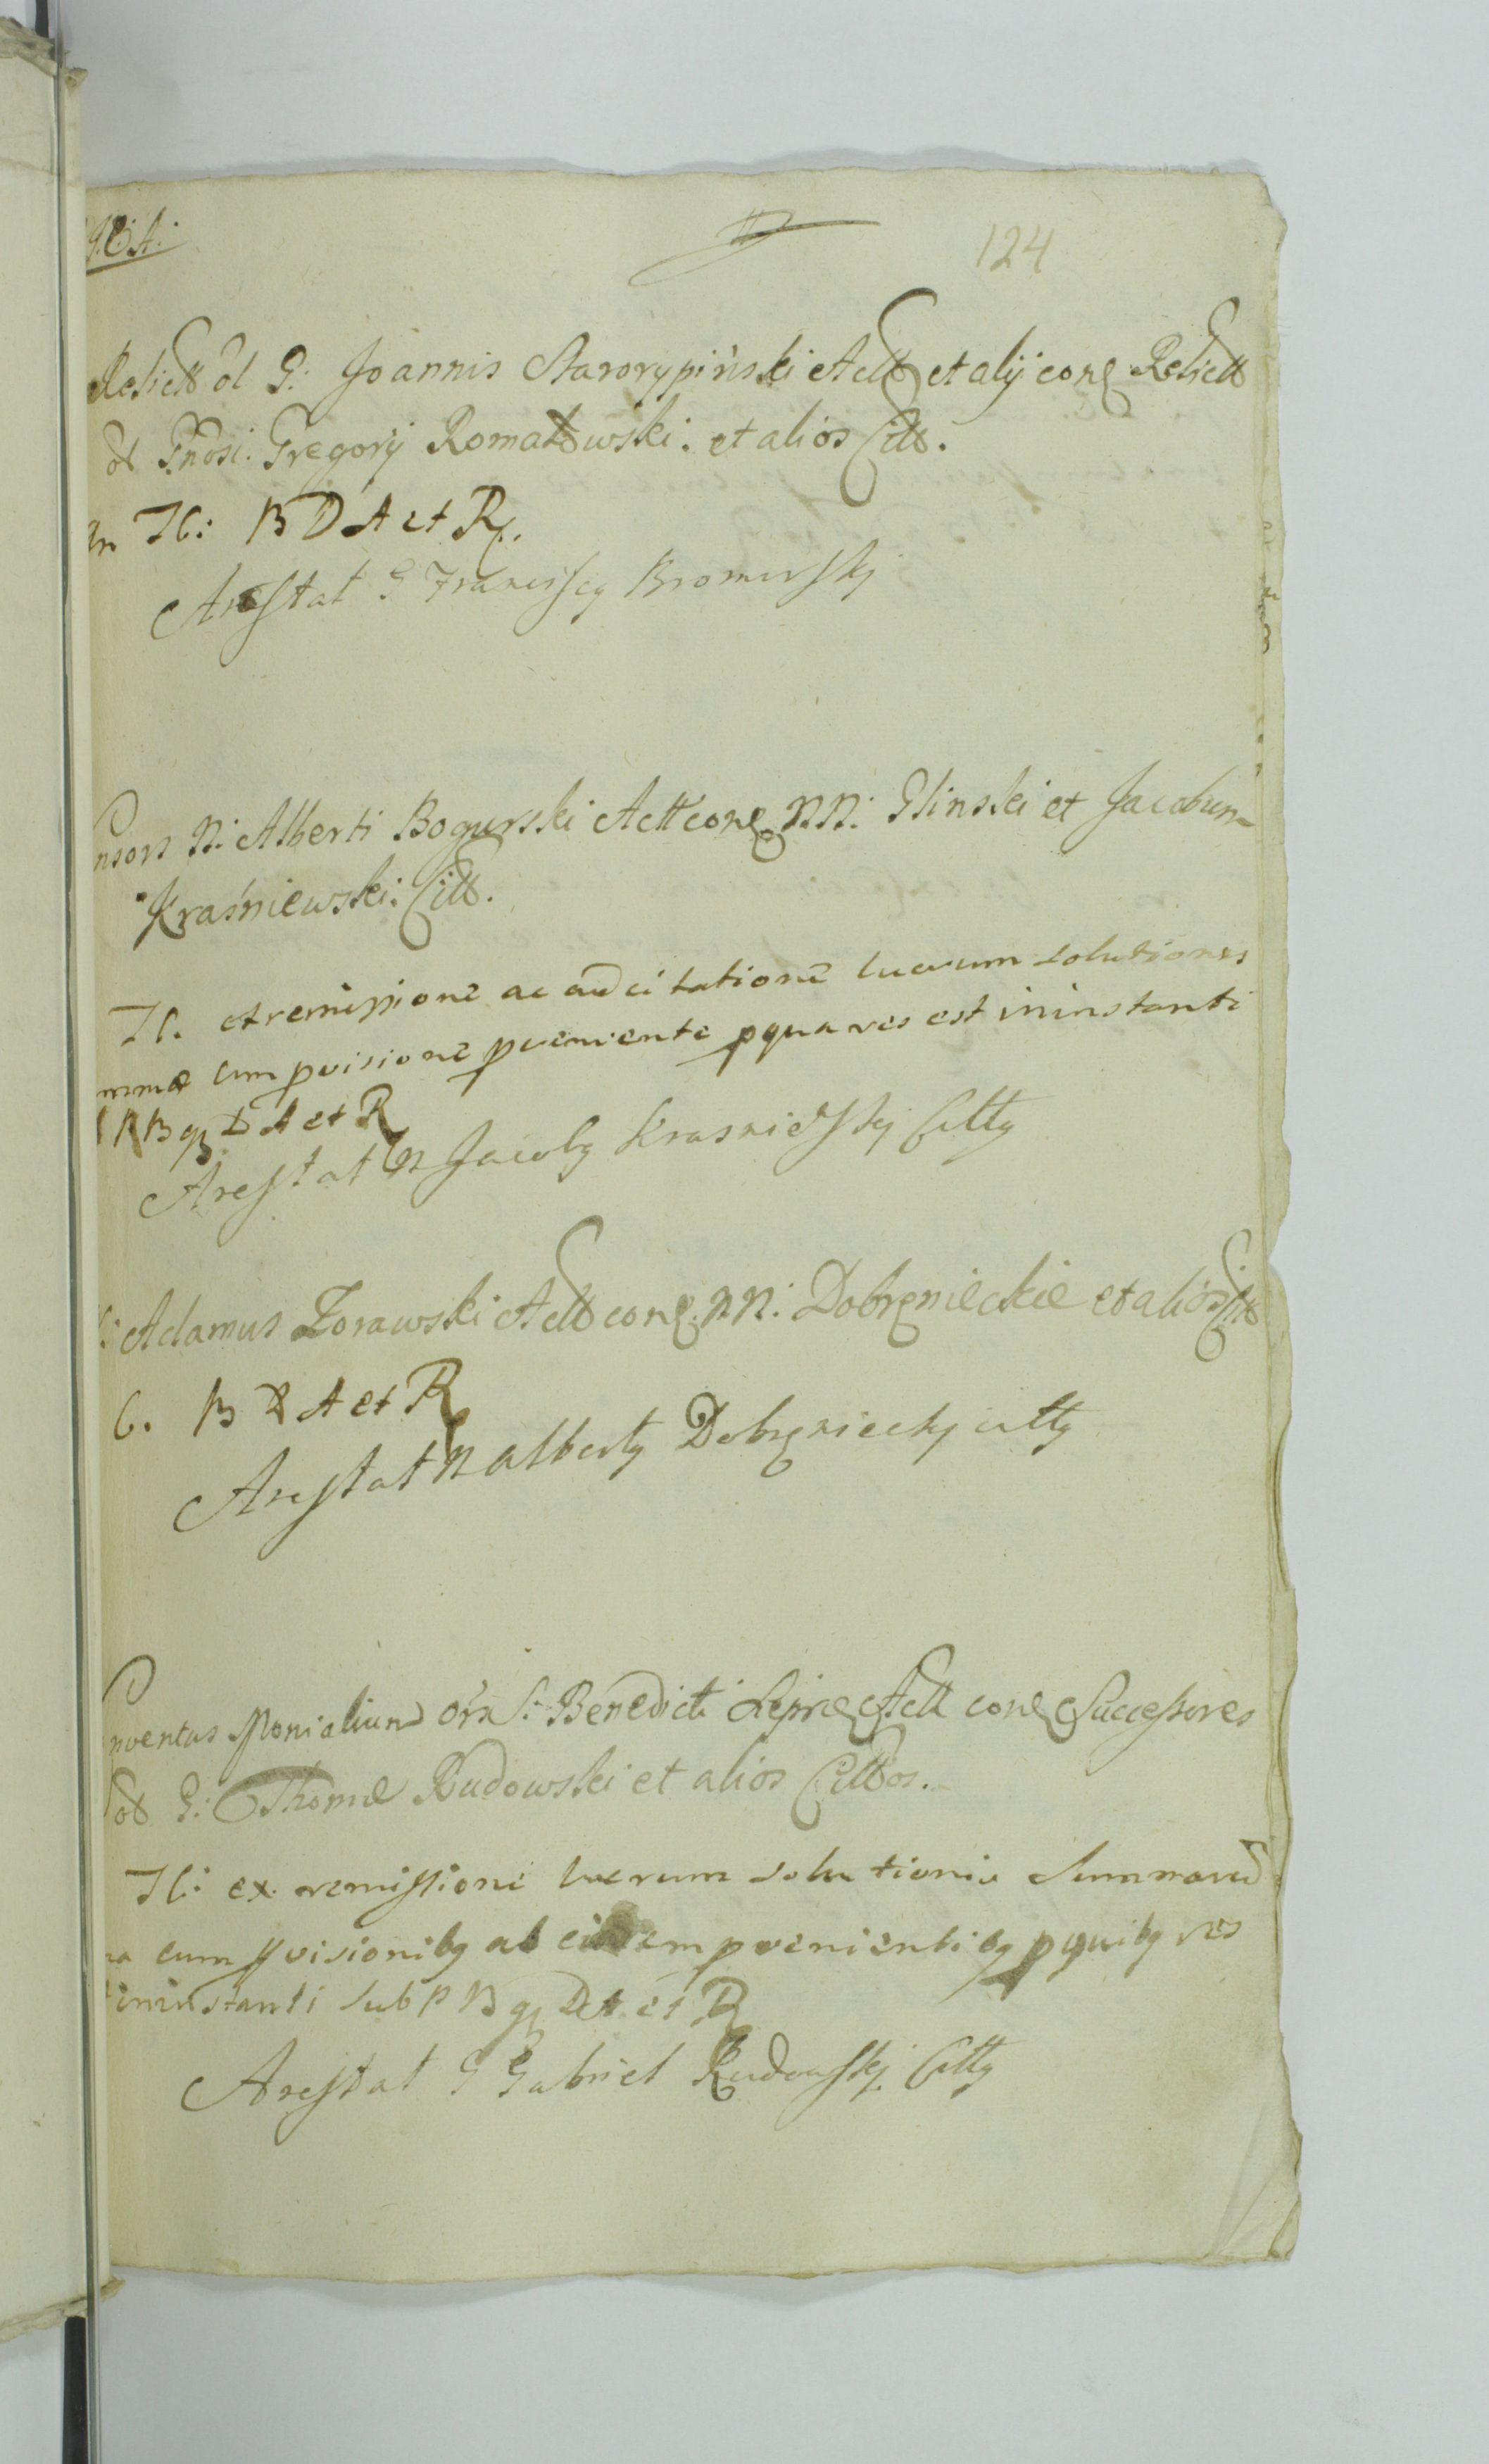 124
Relictt ol G: Joannis Starorypiński Actt et alij conę Relictt
ol Gnosi. Gregorij Romatowski: et alios Citt.
Ic: B D A et R.
Arestat G Franciscq Bromirskj
nsors N: Alberti Bogurski Actt conę NN: Glinski et Jacobum
Kraśniewski: Citt.
Ic. et remissione ac adcitatione lucrum solutiones
mmæ cum pvisione pveniente pqua res est ininstanti
P B qz D A et R
Arestat N Jacobq Krasniewskj Cittq
Adamus Zorawski Actt conę. NN: Dobrzenieckie et alios Citt
C. B D A et R
Arestat N Albertq Dobrzenieckj cittq
nventus Monialium Ors S. Benedicti Sepice Actt conę Successores
ol G: Thomæ Rudowski et alios Cittos.
Ic: ex remissione lucrum solutionis Summarum
cum pvisionibq ab eisdem pvenientibq pquibq res
ininstanti sub P B qz D A et R
Arestat G Gabriel Rudowskj Cittq